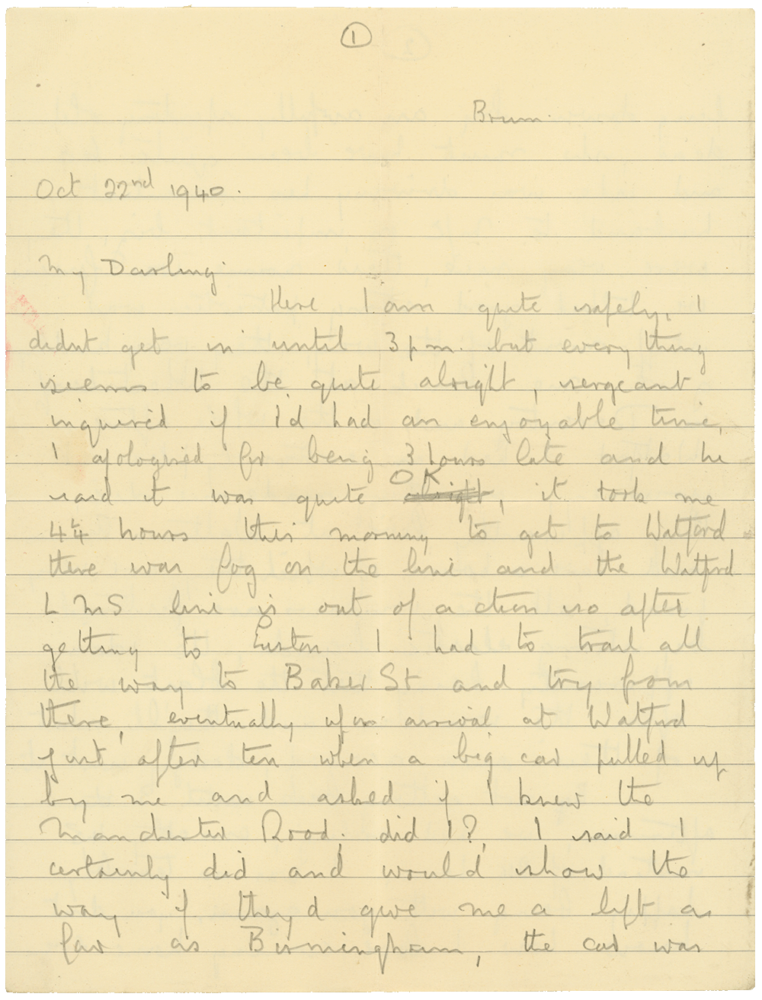 1
Brum.
Oct 22nd 1940.
My Darling
Here I am quite safely, I
didnt get in until 3 p m. but everything
seems to be quite alright, sergeant
inquired if I'd had an enjoyable time,
I apologised for being 3 hours late and he
said it was quite alright OK, it took me
4 1/4 hours this morning to get to Watford
there was fog on the line and the Watford
L M S line is out of action so after
getting to Euston I had to trail all
the way to Baker St and try from
there, eventually upon arrival at Watford
just after ten when a big car pulled up
by me and asked if I knew the
Manchester Road, did I?, I said I
certainly did and would show the
way if they'd give me a lift as
far as Birmingham, the car was